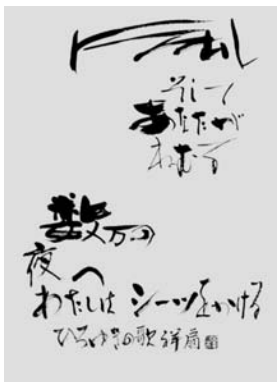 そして
あなたが
ねむる
数万の
夜へ
わたしは シーツをかける
ひろゆきの歌